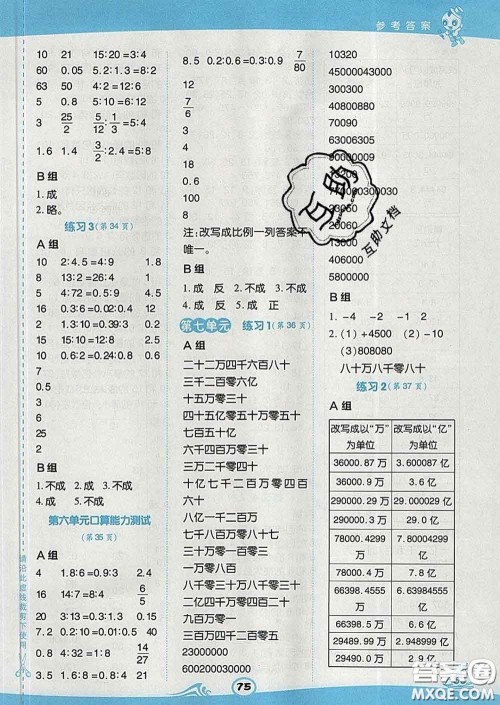 参考答案
10 21 15:20=3:4
60 0.05 5.2:1.3=8:2
63 50 4:2=12:6
5 0.8 0.5:0.2=5:2
3 25/2 5/2:1/3=5:4
1.6 1.4 3/2:2.4=5:8
B组
1.成
2.略。
练习3(第34页)
A组
10 2:4.5=4:9 1.2
8 13:2=26:4 1.5
5 4:72=0.5:9 1.8
15 0.9:10=0.18:2 0.4
2 1.3:10=0.39:3
1 0.5:2=10:40
7 1.5:10=0.6:4
1.8 2:0.4=5:1
2 11:2=55:10
7
0.5
3
6
25
2
B组
1.不成 2.成 3.成
4.成 5.不成
第六单元口算能力测试
(第35页)
A组
4 1.8:6=0.9:3 2.4
16 14:7=8:4
20 3:13=0.3:1.3 0.51
7.2 0.2:10=0.01:0.5 9
0.8 4:32=1:8 14/27
3.5 1.5:6=0.4:1.6 24
8.5 0.2:0.6=0.3:0.9 7/80
12
7/6
3
2
16
0.6
100
8
注:改写成比例一列答案不
唯一。
B组
1.成 反 2.不成 3.不成
4.成 反 5.成 正
第七单元 练习1(第36页)
A组
二十二万四千六百八十
三千二百零六亿
十五万零三十
四十五亿零五十万零五十
七百五十亿
六千四百万零三十
十亿七千二百万零三十
八亿一千二百万
七千八百万零三百三十
一百万零三百三十
一万零八百
八千零三十万零三百五十
四千零五亿零四百二十
九百万零一
一千五百万零三十
23000000
600200030000
10320
45000043000
300300
40808880
70090
63006305
90000
70000300030
3200
406000
5800000
B组
1.-4 -2 -1 2
2.(1)+4500 (2)-10
(3)808080
八十万八千零八十
练习2(第37页)
A组
改写成以“万”为单位 改写成以“亿”为单位
36000.87万 3.600087亿
290000万 29.0亿
290000.29万 29.000029亿
78000.4299万 7.80004299亿
78000.4万 7.8亿
66398.4555万 6.63984555亿
66398.5万 6.6亿
29489.99万 2.948999亿
29490.0万 2.9亿
75
互助
互助文档
请沿此虚线裁剪下使用
答案圈
MXQE.COM